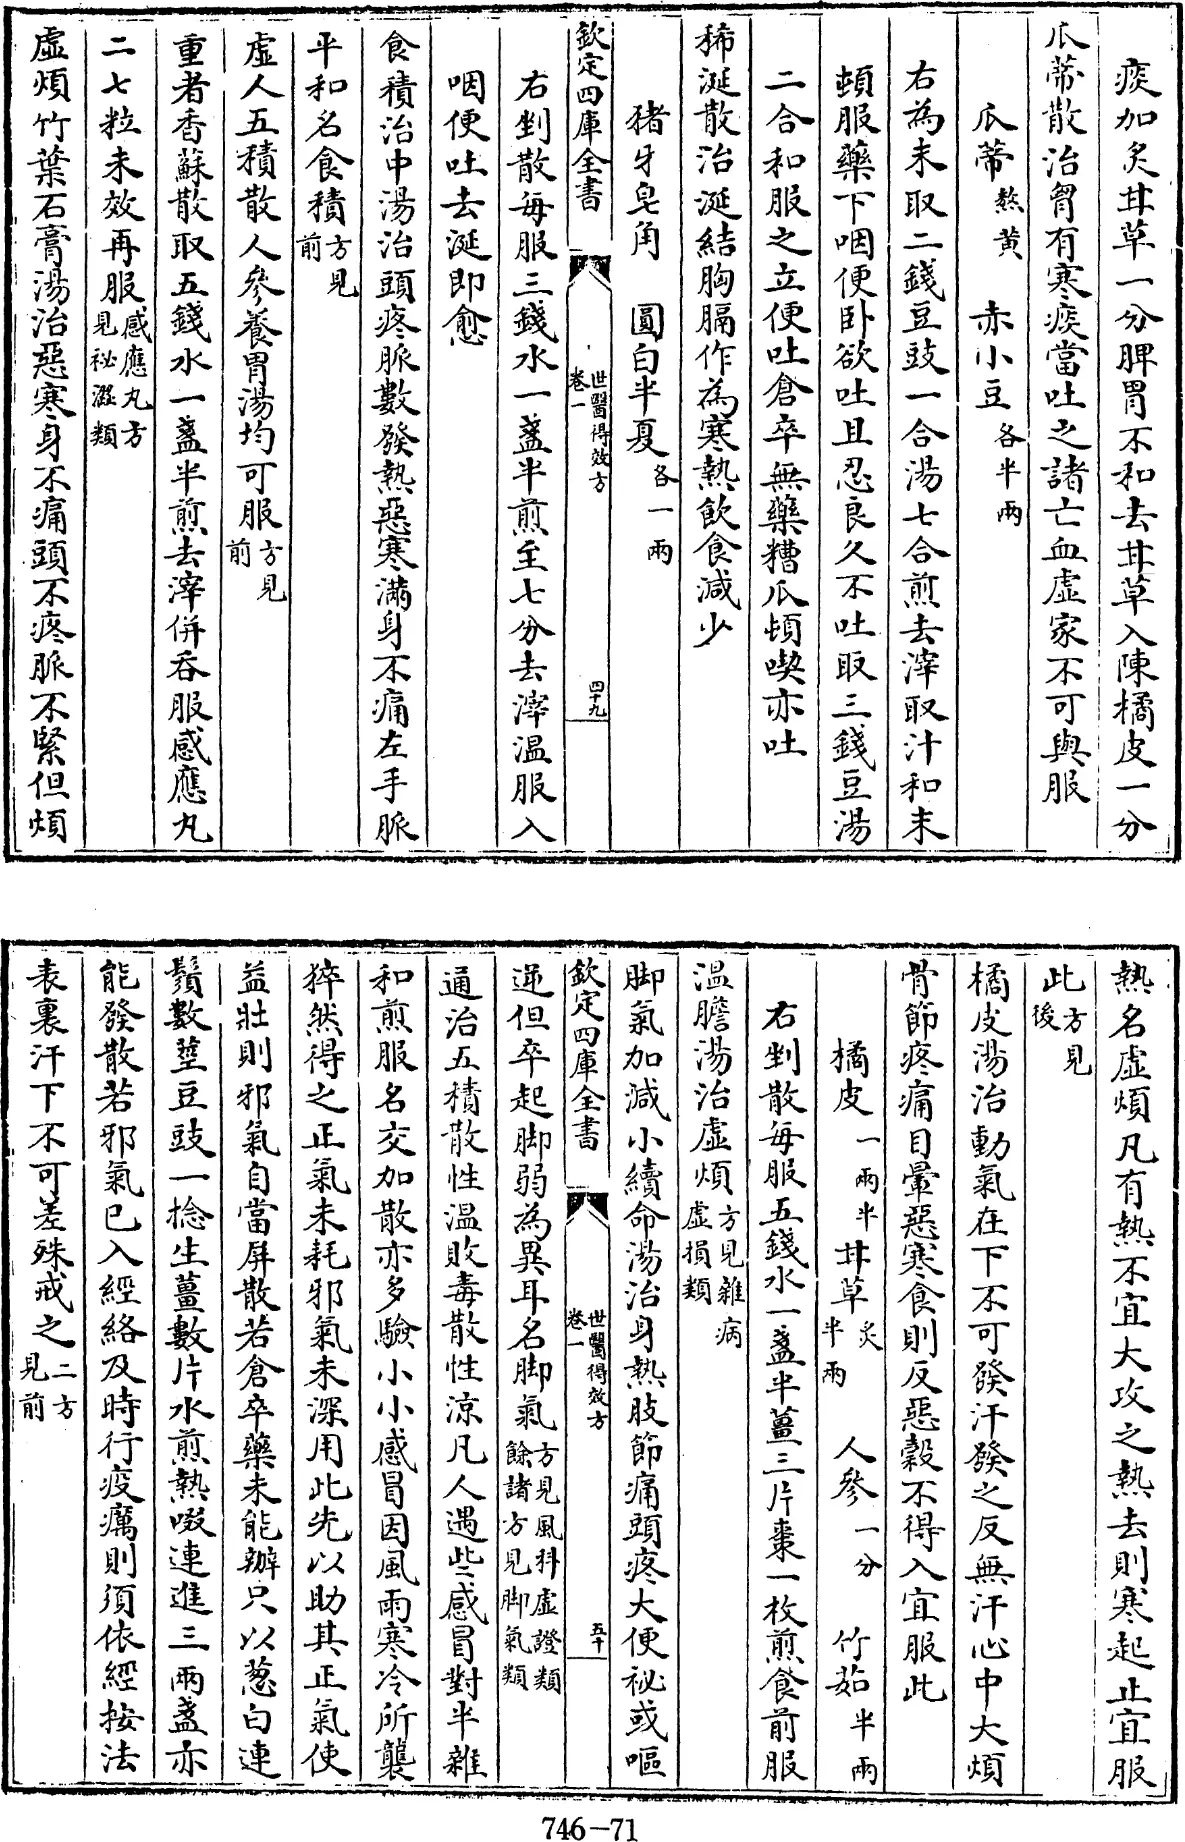 痰加炙甘草一分脾胃不和去甘草入陳橘皮一分
瓜蒂散治胷有寒痰當吐之諸亡血虛家不可與服
瓜蒂熬黄 赤小豆各半兩
右為末取二錢豆豉一合湯七合煎去滓取汁和末
頓服藥下咽便卧欲吐且忍良久不吐取三錢豆湯
二合和服之立便吐倉卒無藥糟瓜頓喫亦吐
稀涎散治涎結胸膈作為寒熱飲食減少
猪牙皂角 圓白半夏各一兩
欽定四庫全書 世醫得效方 卷一 四十九
右剉散每服三錢水一盞半煎至七分去滓温服入
咽便吐去涎即愈
食積治中湯治頭疼脈數發熱惡寒滿身不痛左手脈
平和名食積方見前
虛人五積散人參養胃湯均可服方見前
重者香蘇散取五錢水一盞半煎去滓併吞服感應丸
二七粒未效再服感應丸方見祕澀類
虛煩竹葉石膏湯治惡寒身不痛頭不疼脈不緊但煩
熱名虛煩凡有熱不宜大攻之熱去則寒起止宜服
此方見後
橘皮湯治動氣在下不可發汗發之反無汗心中大煩
骨節疼痛目暈惡寒食則反惡穀不得入宜服此
橘皮一兩半 甘草炙半兩 人參一分 竹茹半兩
右剉散每服五錢水一盞半薑三片棗一枚煎食前服
温膽湯治虛煩方見雜病虛損類
脚氣加減小續命湯治身熱肢節痛頭疼大便祕或嘔
欽定四庫全書 世醫得效方 卷一 五十
逆但卒起脚弱為異耳名脚氣方見風科虛證類餘諸方見脚氣類
通治五積散性温敗毒散性涼凡人遇些感冒對半雜
和煎服名交加散亦多驗小小感冒因風雨寒冷所襲
猝然得之正氣未耗邪氣未深用此先以助其正氣使
益壯則邪氣自當屏散若倉卒藥未能辦只以葱白連
鬚數莖豆豉一捻生薑數片水煎熱啜連進三兩盞亦
能發散若邪氣已入經絡及時行疫癘則須依經按法
表裏汗下不可差殊戒之二方見前
746-71